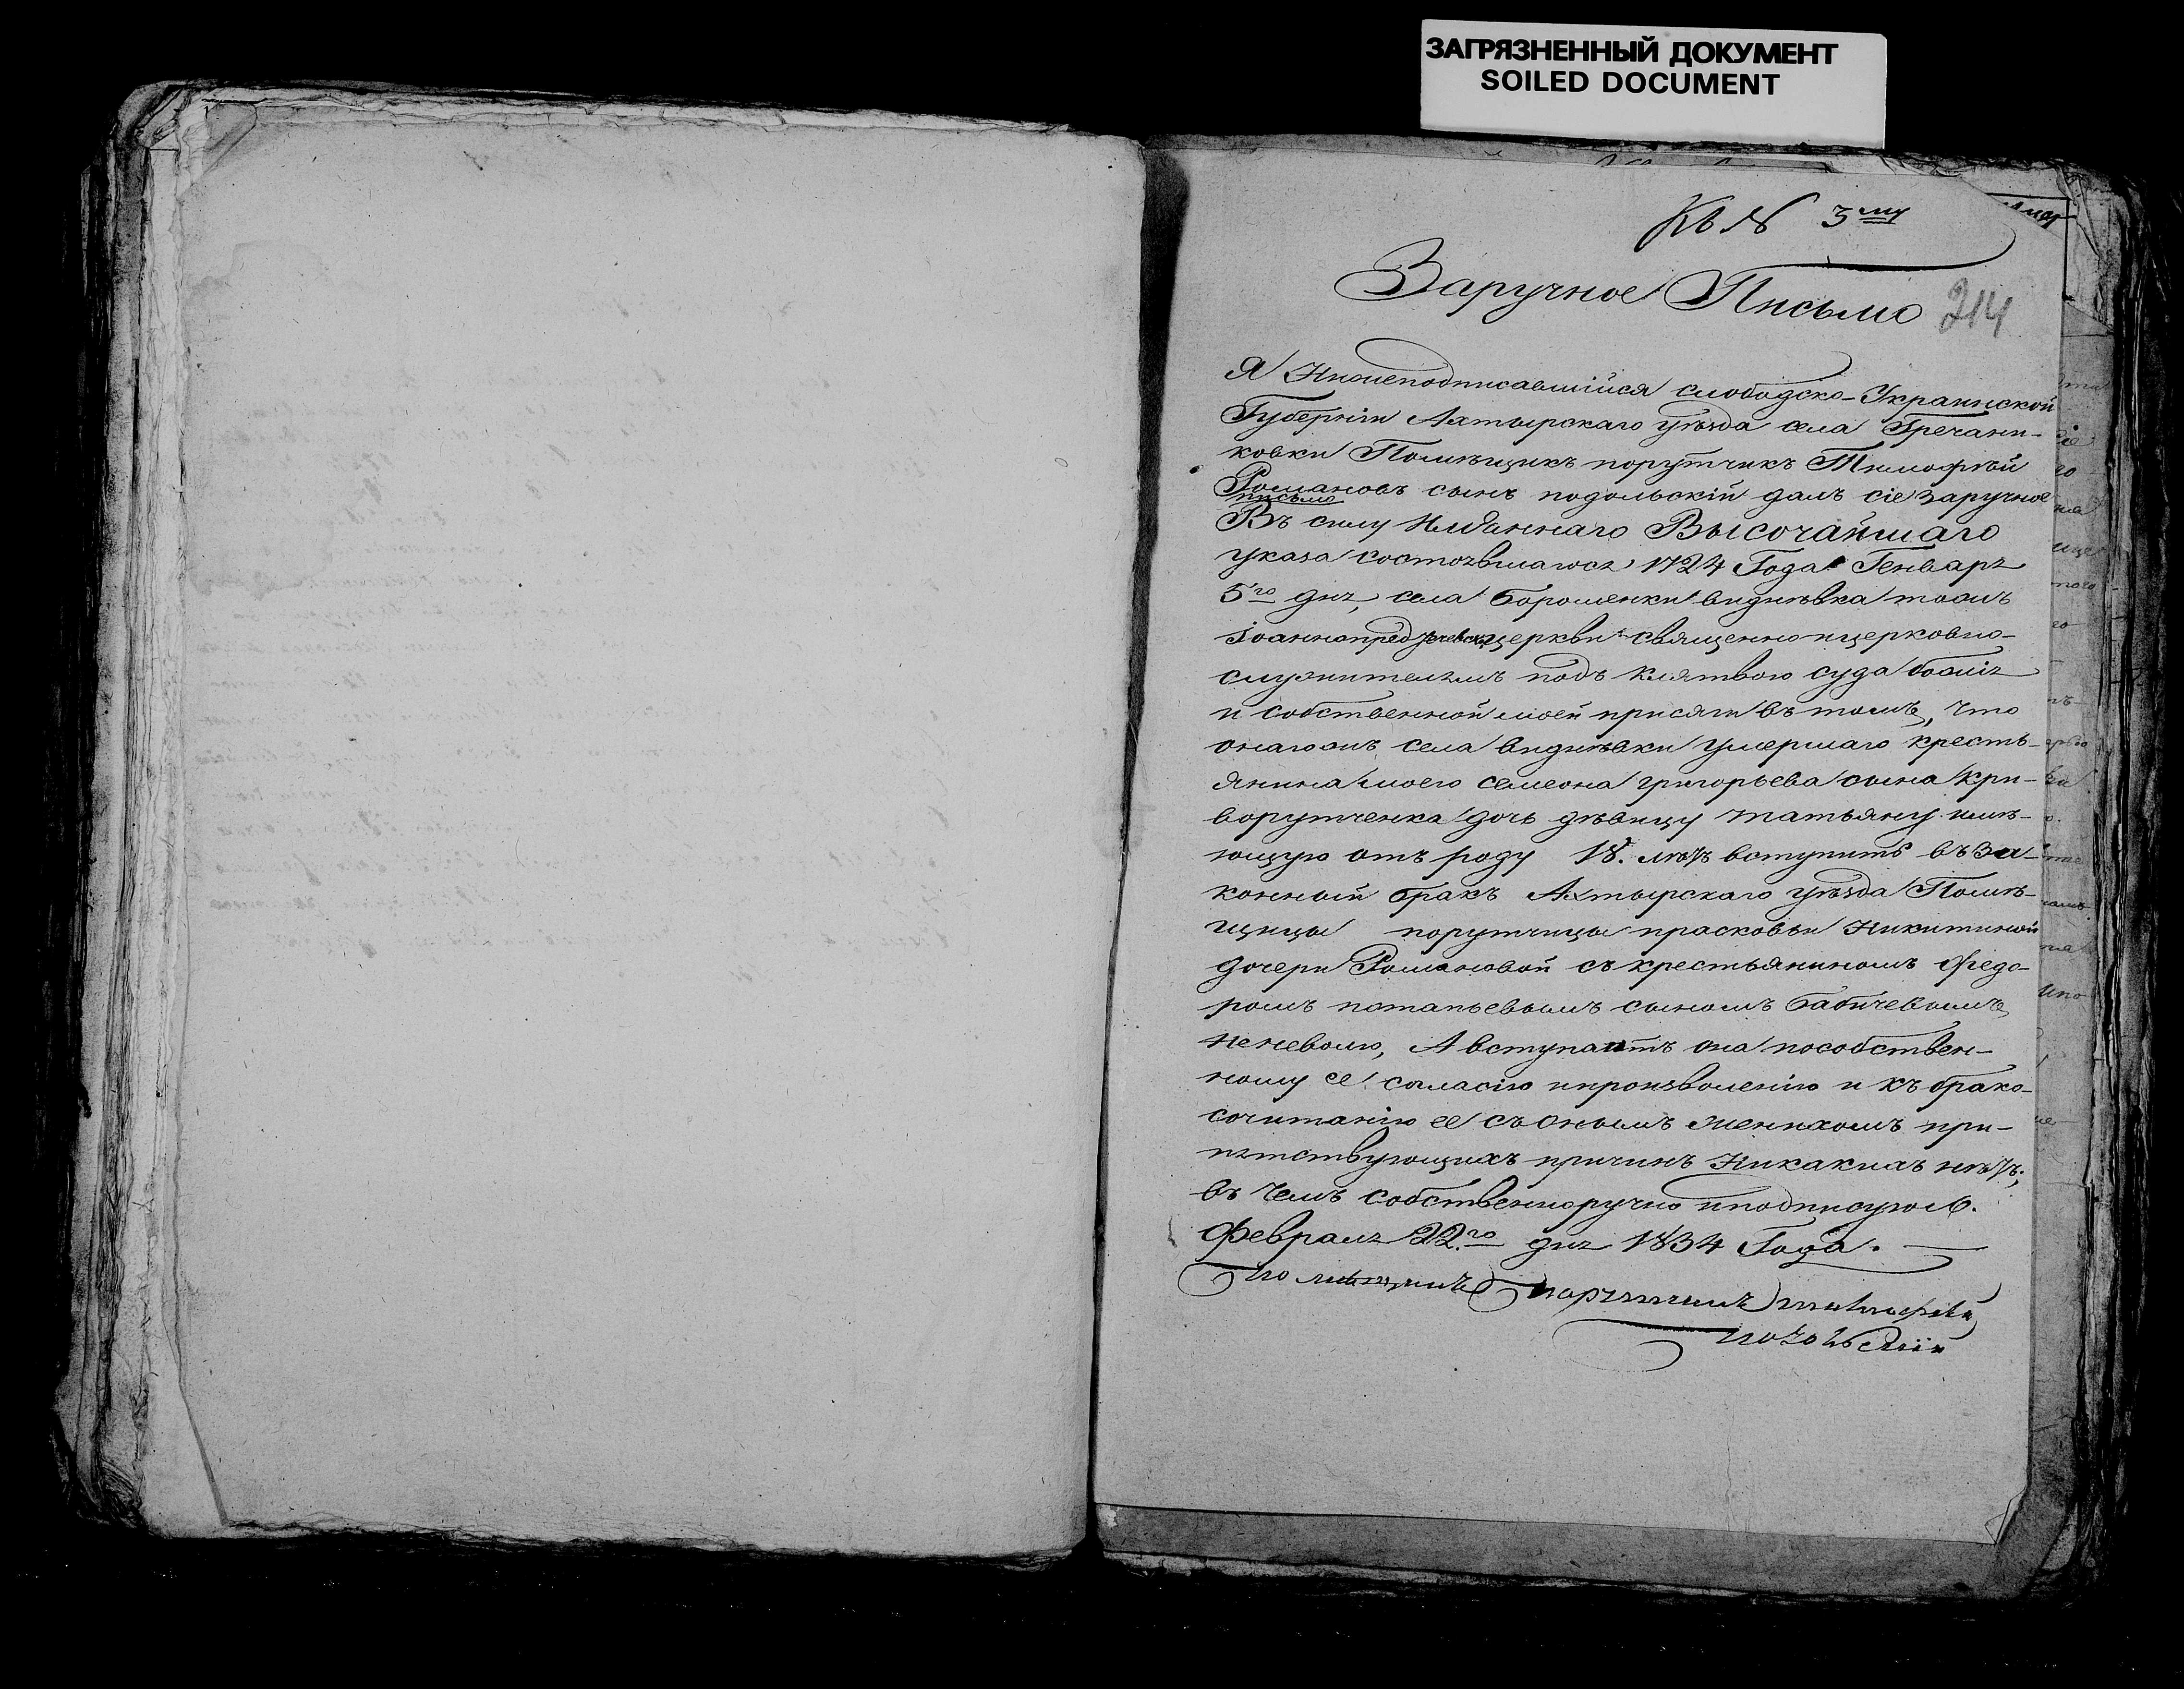 ЗАГРЯЗНЕННЫЙ ДОКУМЕНТ
SOILED DOCUMENT
Къ № 3му
Заручное Письмо
214
Я Нижеподписавшійся слободско-Украинской
Губерніи Ахтырскаго уѣзда села Гречани-
ковки Помѣщикъ порутчикъ Тимофѣй
Романовъ сынъ подольскій далъ сіе заручное
письмо
Въ силу Имяннаго Высочайшаго
указа состоявшагося 1724 Года Генваря
5го дня, села боромеики виднѣвка тожъ
Іоаннопредтечевской церкви священно и церковно-
служителямъ подъ клятвою суда божія
и собственной моей присяги въ томъ, что
онагожъ села виднѣвки умершаго кресть-
янина моего семеона григорьева сына Кри-
ворутченка дочь дѣвицу татьяну имѣ-
ющую отъ роду 18. лѣтъ вступить въ за-
конный бракъ Ахтырскаго уѣзда Помѣ-
щицы порутчицы прасковьи Никитиной
дочери Романовой съ крестьяниномъ Федо-
ромъ потапьевымъ сыномъ бабичевымъ
неневолю, А вступаитъ она пособствен-
ному ее согласію ипроизволенію и къ брако-
сочитанію ее съ онымъ женихомъ при-
пятствующихъ причинъ Никакихъ нѣтъ;
въ чемъ собственноручно иподписуюсь.
Февраля 22го дня 1834 Года.
помѣщикъ порутчикъ тимофѣй
подольскій